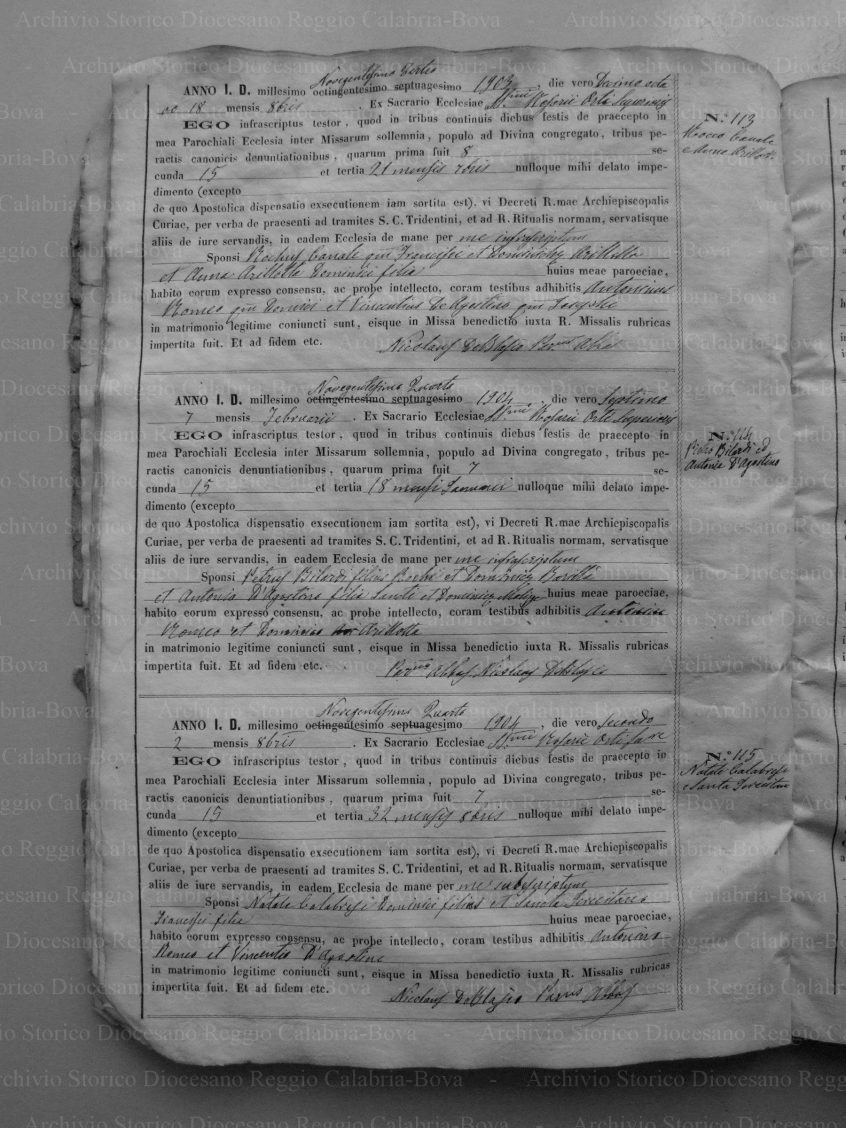 Archivio Storico Diocesano Reggio Calabria-Bova
Novegentesimo Tertio
ANNO I. D. millesimo octingentesimo septuagesimo 1903, die vero Decimo octa
vo 18 mensis 8bris . Ex Sacrario Ecclesiae SSmi Rosarii Orti Superioris
EGO infrascriptus testor, quod in tribus continuis diebus festis de praecepto in
mea Parochiali Ecclesia inter Missarum sollemnia, populo ad Divina congregato, tribus pe-
ractis canonicis denuntiationibus, quarum prima fuit 8 se-
cunda 15 et tertia 21 mensis nulloque mihi delato impe-
dimento (excepto
de quo Apostolica dispensatio exsecutionem iam sortita est), vi Decreti R.mae Archiepiscopalis
Curiae, per verba de praesenti ad tramites S. C. Tridentini, et ad R. Ritualis normam, servatisque
aliis de iure servandis, in eadem Ecclesia de mane per me infrascriptum
Sponsi Rochus Canale qm Francisci et Arillotta
et Anna Arillotta Dominici filia huius meae paroeciae,
habito eorum expresso consensu, ac probe intellecto, coram testibus adhibitis Antonius
Romeo qm Dominici et Vincentius De Agostino qm Josephi
in matrimonio legitime coniuncti sunt, eisque in Missa benedictio iuxta R. Missalis rubricas
impertita fuit. Et ad fidem etc. Nicolaus DeBlasio Abbas
N.º 113
Rocco Canale
e Anna Arillotta
Novegentesimo Quarto
ANNO I. D. millesimo octingentesimo septuagesimo 1904, die vero Septimo
7 mensis Februarii . Ex Sacrario Ecclesiae SSmi Rosarii Orti Superioris
EGO infrascriptus testor, quod in tribus continuis diebus festis de praecepto in
mea Parochiali Ecclesia inter Missarum sollemnia, populo ad Divina congregato, tribus pe-
ractis canonicis denuntiationibus, quarum prima fuit 7 se-
cunda 15 et tertia 18 mensis Januarii nulloque mihi delato impe-
dimento (excepto
de quo Apostolica dispensatio exsecutionem iam sortita est), vi Decreti R.mae Archiepiscopalis
Curiae, per verba de praesenti ad tramites S. C. Tridentini, et ad R. Ritualis normam, servatisque
aliis de iure servandis, in eadem Ecclesia de mane per me infrascriptum
Sponsi Petrus Bilardi filius Rochi et Dominicæ
et Antonia D'Agostino filia Santi et Dominicæ huius meae paroeciae,
habito eorum expresso consensu, ac probe intellecto, coram testibus adhibitis Antonius
Romeo et Dominicus Arillotta
in matrimonio legitime coniuncti sunt, eisque in Missa benedictio iuxta R. Missalis rubricas
impertita fuit. Et ad fidem etc. Abbas Nicolaus DeBlasio
N.º 114
Pietro Bilardi ed
Antonia D'Agostino
Novegentesimo Quarto
ANNO I. D. millesimo octingentesimo septuagesimo 1904, die vero Secondo
2 mensis 8bris . Ex Sacrario Ecclesiae SSmi Rosarii Orti
EGO infrascriptus testor, quod in tribus continuis diebus festis de praecepto in
mea Parochiali Ecclesia inter Missarum sollemnia, populo ad Divina congregato, tribus pe-
ractis canonicis denuntiationibus, quarum prima fuit 7 se-
cunda 15 et tertia mensis nulloque mihi delato impe-
dimento (excepto
de quo Apostolica dispensatio exsecutionem iam sortita est), vi Decreti R.mae Archiepiscopalis
Curiae, per verba de praesenti ad tramites S. C. Tridentini, et ad R. Ritualis normam, servatisque
aliis de iure servandis, in eadem Ecclesia de mane per me subscriptum
Sponsi Natale Calabresi Dominici filius et Sancta
Francisci filia huius meae paroeciae,
habito eorum expresso consensu, ac probe intellecto, coram testibus adhibitis Antonius
Romeo et Vincentio D'Agostino
in matrimonio legitime coniuncti sunt, eisque in Missa benedictio iuxta R. Missalis rubricas
impertita fuit. Et ad fidem etc. Nicolaus DeBlasio Abbas
N.º 115
Natale Calabrese
e Santa